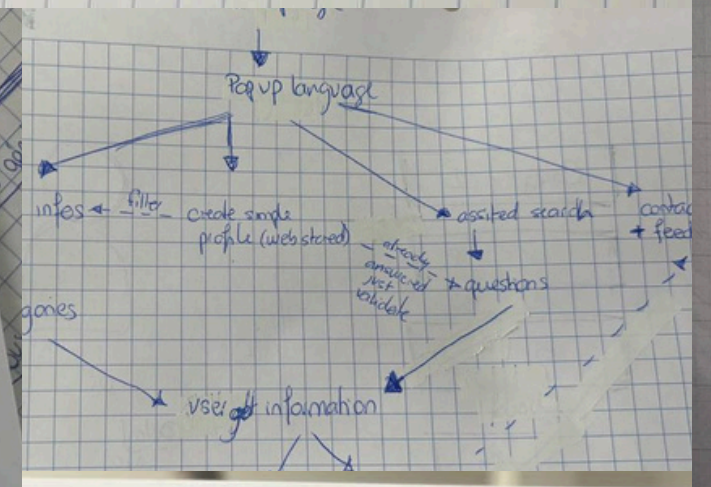 Pop up language
infos
filter
create single
profile (web stored)
assited search
contac
+ feed
already
answered
just
validate
questions
gories
user get information